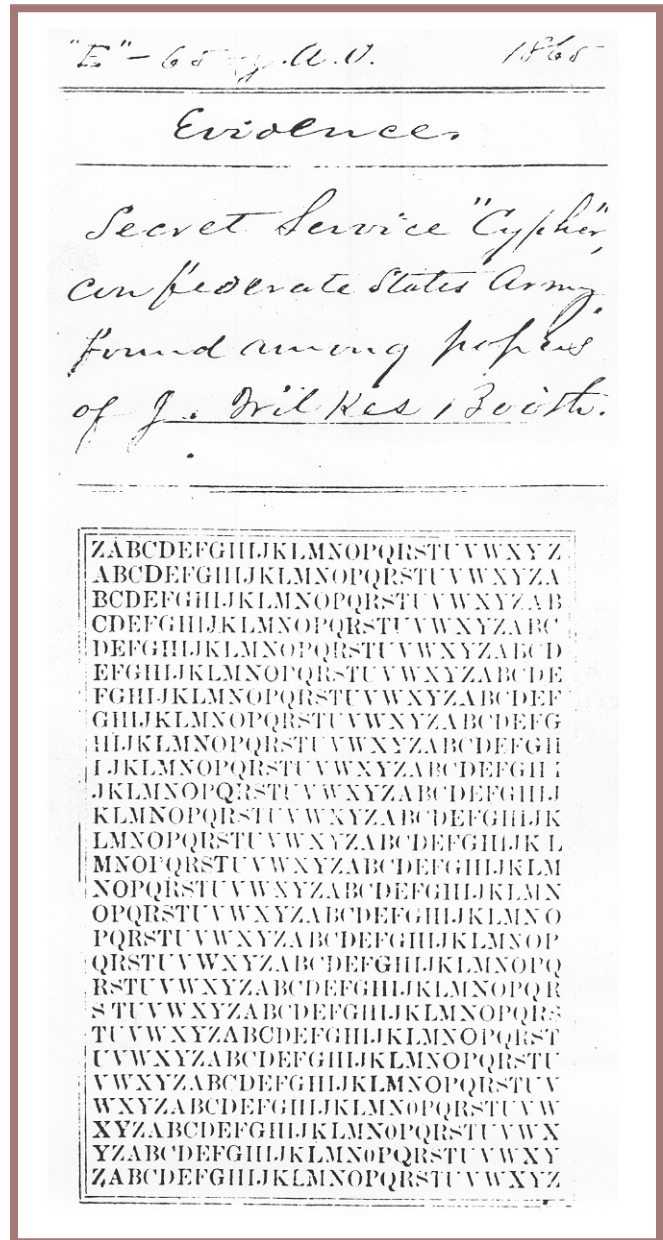 "E" – 65 J.A.O. 1865
Evidence.
Secret Service "Cypher",
confederate States Army.
Found among papers
of J. Wilkes Booth.
ZABCDEFGHIJKLMNOPQRSTUVWXYZ
ABCDEFGHIJKLMNOPQRSTUVWXYZA
BCDEFGHIJKLMNOPQRSTUVWXYZAB
CDEFGHIJKLMNOPQRSTUVWXYZABC
DEFGHIJKLMNOPQRSTUVWXYZABCD
EFGHIJKLMNOPQRSTUVWXYZABCDE
FGHIJKLMNOPQRSTUVWXYZABCDEF
GHIJKLMNOPQRSTUVWXYZABCDEFG
HIJKLMNOPQRSTUVWXYZABCDEFGH
IJKLMNOPQRSTUVWXYZABCDEFGHI
JKLMNOPQRSTUVWXYZABCDEFGHIJ
KLMNOPQRSTUVWXYZABCDEFGHIJK
LMNOPQRSTUVWXYZABCDEFGHIJKL
MNOPQRSTUVWXYZABCDEFGHIJKLM
NOPQRSTUVWXYZABCDEFGHIJKLMN
OPQRSTUVWXYZABCDEFGHIJKLMNO
PQRSTUVWXYZABCDEFGHIJKLMNOP
QRSTUVWXYZABCDEFGHIJKLMNOPQ
RSTUVWXYZABCDEFGHIJKLMNOPQR
STUVWXYZABCDEFGHIJKLMNOPQRS
TUVWXYZABCDEFGHIJKLMNOPQRST
UVWXYZABCDEFGHIJKLMNOPQRSTU
VWXYZABCDEFGHIJKLMNOPQRSTUV
WXYZABCDEFGHIJKLMNOPQRSTUVW
XYZABCDEFGHIJKLMNOPQRSTUVWX
YZABCDEFGHIJKLMNOPQRSTUVWXY
ZABCDEFGHIJKLMNOPQRSTUVWXYZ